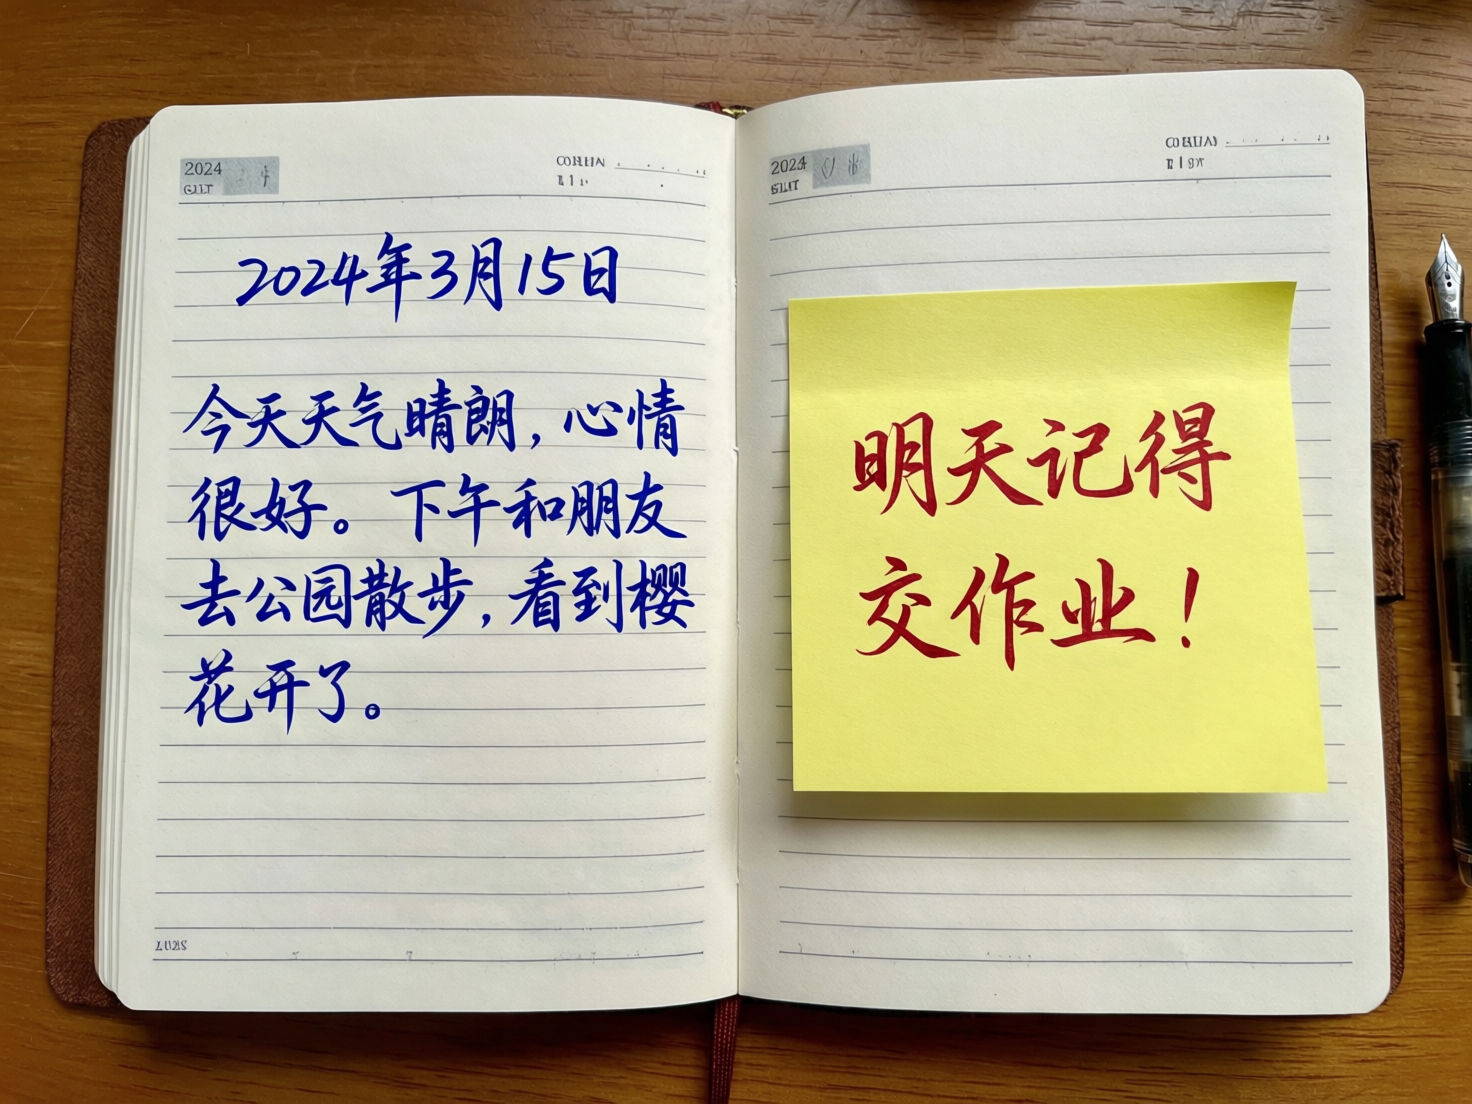 2024
2024年3月15日
今天天气晴朗，心情
很好。下午和朋友
去公园散步，看到樱
花开了。
2024
明天记得
交作业！